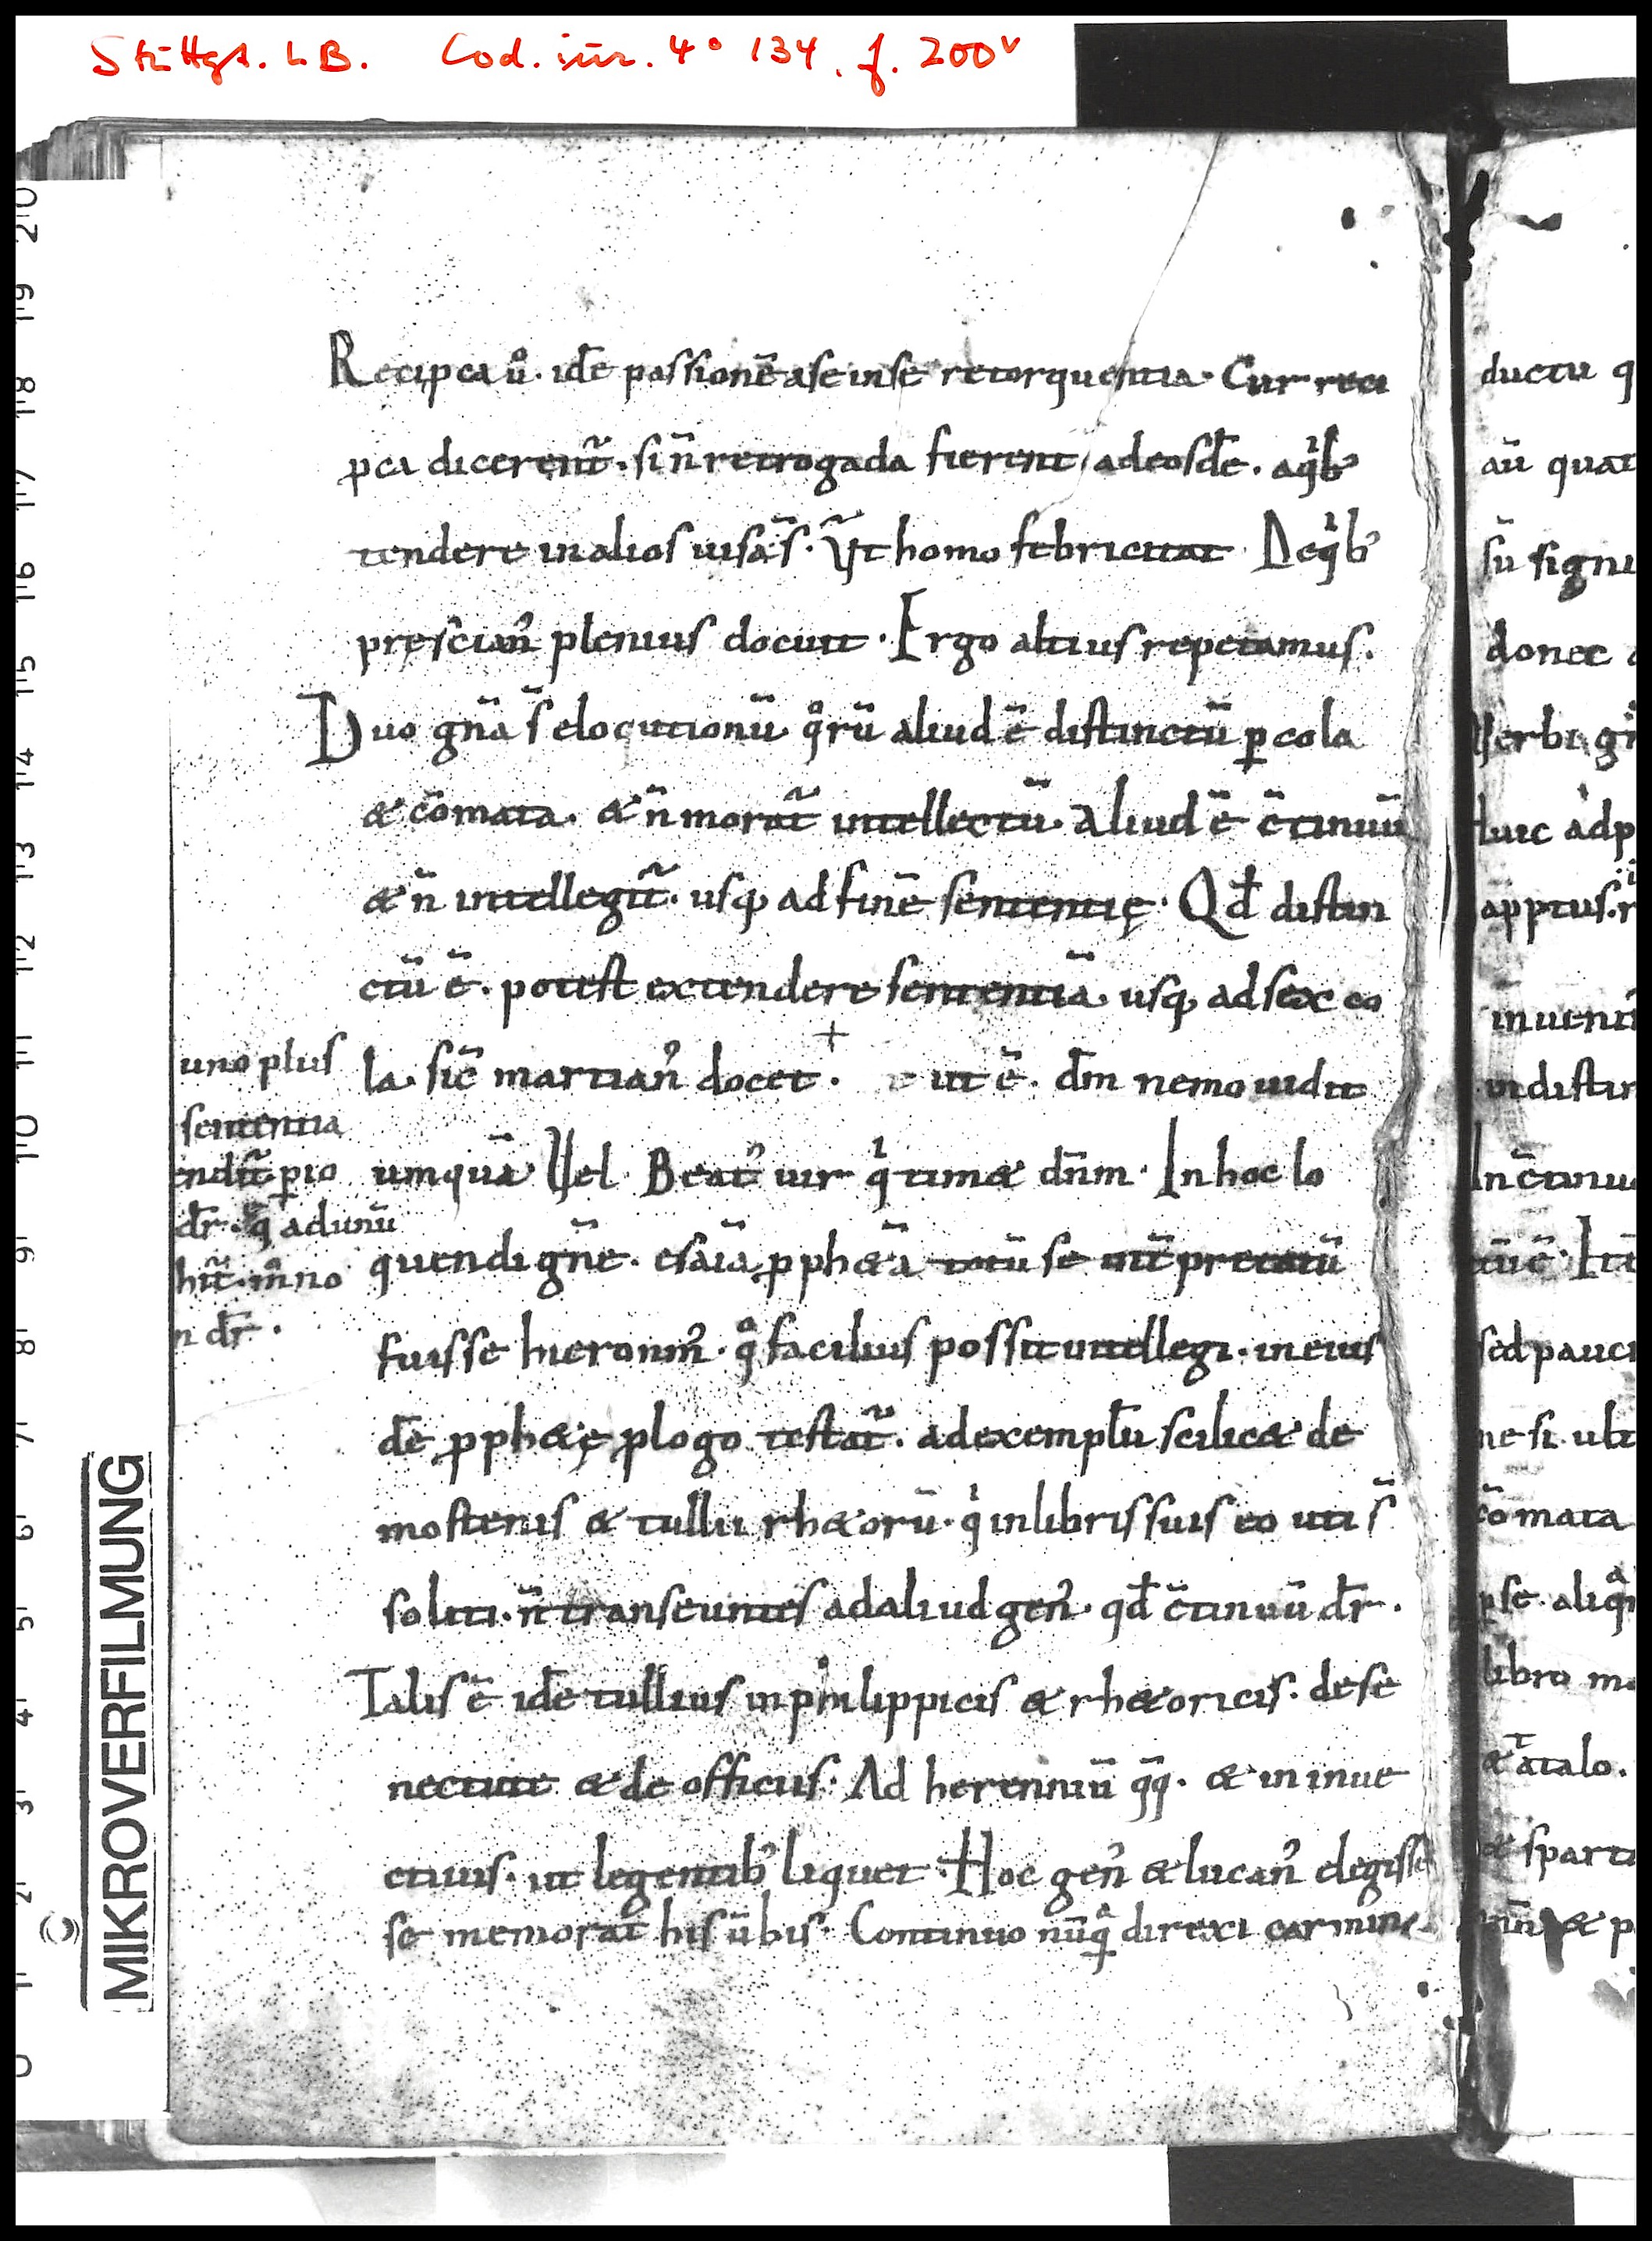 Stuttgt. LB. Cod. iur. 4° 134. f. 200v
Recipca ů. idē passionē a se in se retorquentia. Cur reci
pca dicerent̃. si ñ retrogada fierent adeosdē. aqͥb᾽
tendere in alios uisa s̃. Vt̃ homo febricitat Deqͥb᾽
pręscian᾽ plenius docuit. Ergo altius repetamus.
Duo gña s̃ elocutionū qͦrū aliud ē distinctū ꝑ cola
& cōmata. & ñ morat̃ intellectū. Aliud ē c̄tinuū
& ñ intellegit̃. usqꝫ ad finē sententię. Qđ distin
ctū ē. potest extendere sententiā usqꝫ ad sex co
la. sic̄ martian᾽ docet. ut ē. dm̄ nemo uidit
umquā Vel. Beat᾽ uir qͥ tim& dñm. In hoc lo
quendi gñe. esaiā ꝓph&ā totū se int̃pretatū
fuisse hieronim᾽. qͦ facilius possit intellegi. in eius
dē ꝓph&ę ꝓlogo testat̃. ad exemplū scilic& de
mostenis & tullii rh&orū. qͥ in libris suis eo uti s̃
soliti. ñ transeuntes ad aliud gen᾽. qđ c̄tinuū dr̄.
Talis ē idē tullius in philippicis & rh&oricis. de se
nectute & de officiis. Ad herenniū qq̄. & in inue
ctiuis. ut legentib᾽ liquet. Hoc gen᾽ & lucan᾽ degisse
se memorat his ūbis. Continuo nūqͣ direxi carmine
uno plus
sententia
endit̃ ꝑio
dr̄. qͣ adunū
hit̃. in̄no
n dr̄.
ductu q
aū quat
sū signi
donec
Verbi gͬ
Huic adp
apptus. r
inuenit̃
indistin
In c̄tinu
tū ē. Ita
sed pauci
ne si. ubi
cōmata
ꝑse. aliqͣ
libro m
& atalo.
& sparta
& p
MIKROVERFILMUNG
0 1 2 3 4 5 6 7 8 9 10 11 12 13 14 15 16 17 18 19 20